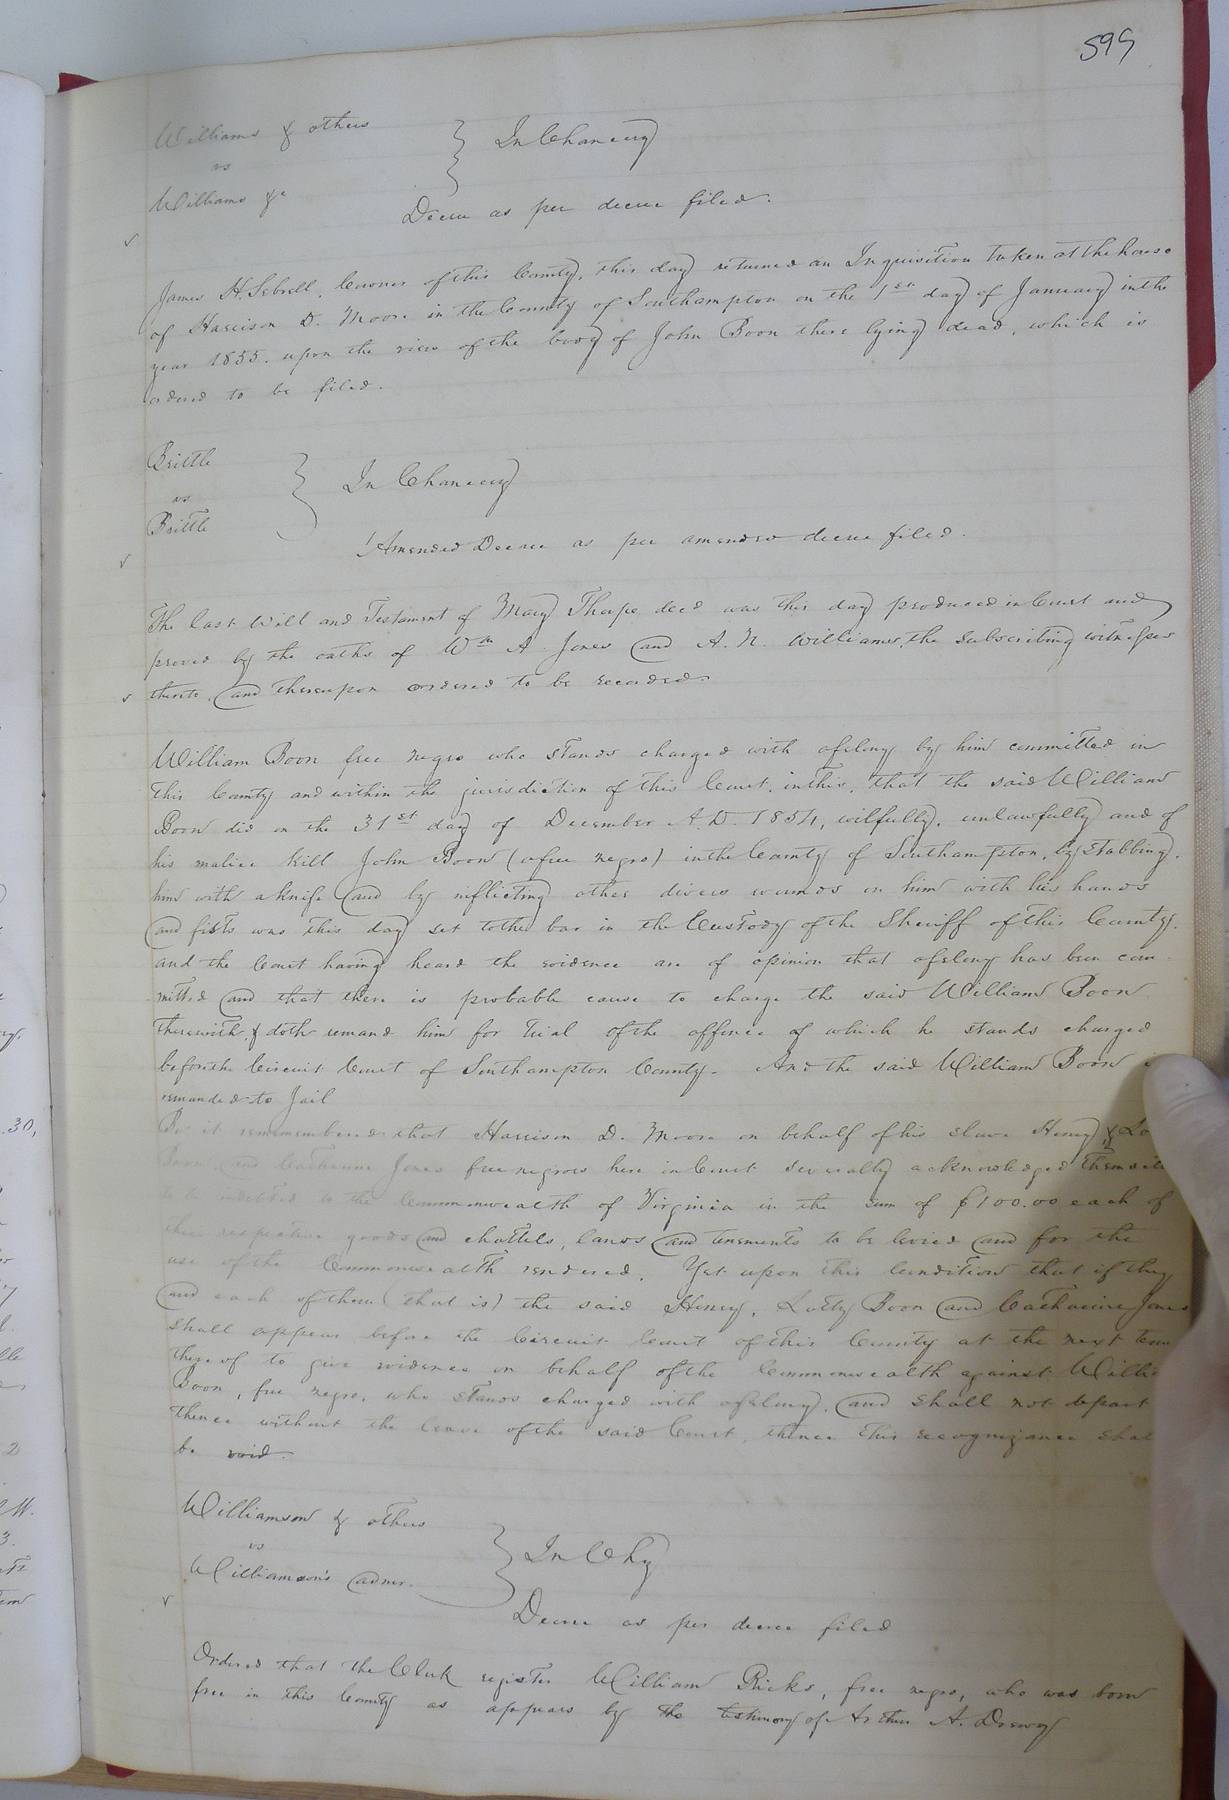 599
Williams & others
vs
Williams &c
In Chancery
Decree as per decree filed.
James H. Sebrell, Coroner of this County, this day returned an Inquisition taken at the house
of Harrison D. Moore in the County of Southampton on the 1st day of January in the
year 1855. upon the view of the body of John Boon there lying dead, which is
ordered to be filed.
Brittle
vs
Brittle
In Chancery
Amended Decree as per amended decree filed.
The last Will and Testament of Mary Thorpe decd was this day produced in Court and
proved by the oaths of Wm A. Jones and A. N. Williams, the subscribing witnesses
thereto, and thereupon ordered to be recorded.
William Boon free negro who stands charged with a felony by him committed in
this County and within the jurisdiction of this Court, in this, that the said William
Boon did on the 31st day of December A.D. 1854, wilfully, unlawfully and of
his malice kill John Boon (a free negro) in the County of Southampton, by stabbing,
him with a knife and by inflicting other divers wounds on him with his hands
and fists was this day set to the bar in the Custody of the Sheriff of this County.
and the Court having heard the evidence are of opinion that a felony has been com-
mitted and that there is probable cause to charge the said William Boon
therewith, & doth remand him for trial of the offence of which he stands charged
before the Circuit Court of Southampton County. And the said William Boon is
remanded to Jail
Be it rememembered that Harrison D. Moore on behalf of his slave Henry, &
Boon and Catharine Jones free negroes here in Court severally acknowledged
to be indebted to the Commonwealth of Virginia in the sum of $100.00 each of
their respective goods and chattels, lands and tenements to be levied and for the
use of the Commonwealth rendered. Yet upon this Condition that if they
and each of them (that is) the said Henry, Lotty Boon and Catharine Jones
shall appear before the Circuit Court of this County at the next term
thereof to give evidence on behalf of the Commonwealth against
Boon, free negro, who stands charged with a felony, and shall not depart
thence without the leave of the said Court, thence this recognizance
be void.
Williamson & others
vs
Williamson's admr.
In Chy
Decree as per decree filed
Ordered that the Clerk register William Ricks, free negro, who was born
free in this County as appears by the testimony of Arthur A. Drewry